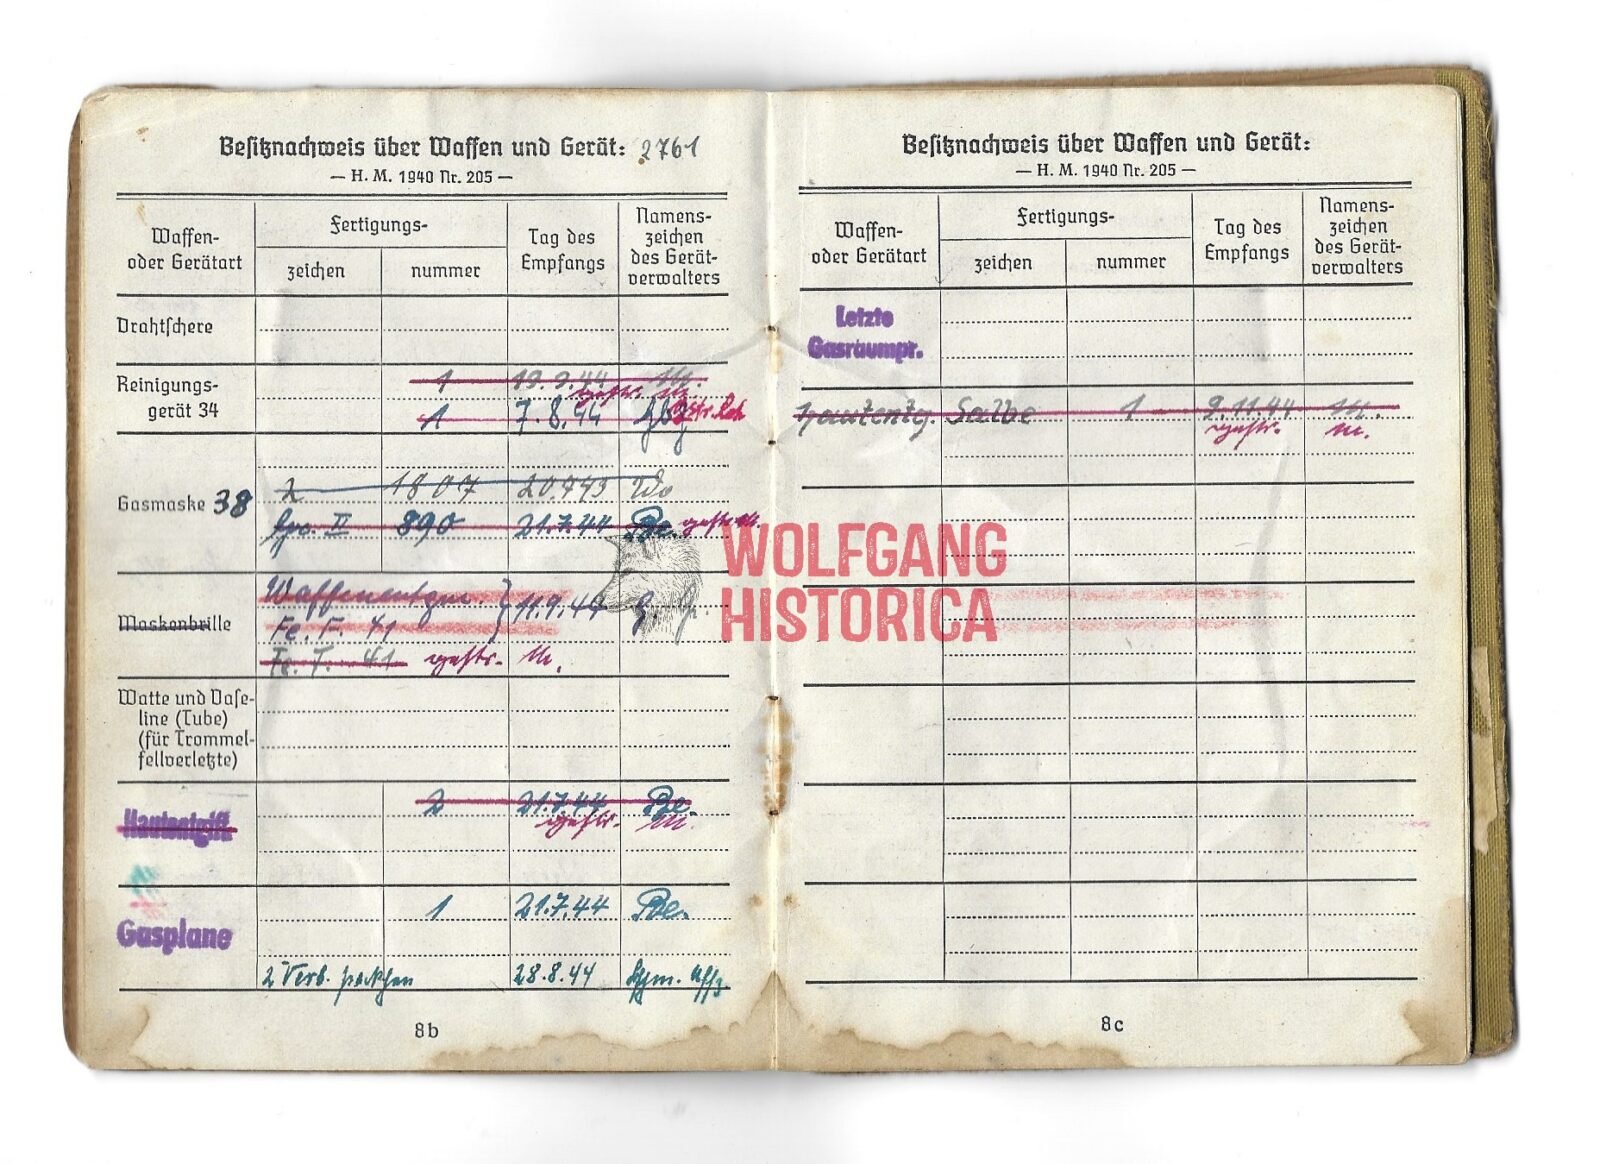 Besitznachweis über Waffen und Gerät: 2761
— H. M. 1940 Nr. 205 —
Waffen-
oder Gerätart
Fertigungs-
zeichen
nummer
Tag des
Empfangs
Namens-
zeichen
des Gerät-
verwalters
Drahtschere
Reinigungs-
gerät 34
1 19.9.44 M.
gestr. M.
1 7.8.44 gestr.
Gasmaske 38
2 1807 20.7.43 Wo
II 890 21.7.44 Be. gestr. M.
Maskenbrille
Waffenentgm. } 11.9.44 G.
Fe. F. 41
Fe. F. 41 gestr. M.
Watte und Vase-
line (Tube)
(für Trommel-
fellverletzte)
Hautentgift
2 21.7.44 Be.
gestr. M.
Gasplane
1 21.7.44 Be.
2 Verb. päckchen 28.8.44 Uffz
8b
Besitznachweis über Waffen und Gerät:
— H. M. 1940 Nr. 205 —
Waffen-
oder Gerätart
Fertigungs-
zeichen
nummer
Tag des
Empfangs
Namens-
zeichen
des Gerät-
verwalters
Letzte
Gasraumpr.
Hautentg. Salbe 1 2.11.44 M.
gestr. M.
8c
WOLFGANG
HISTORICA